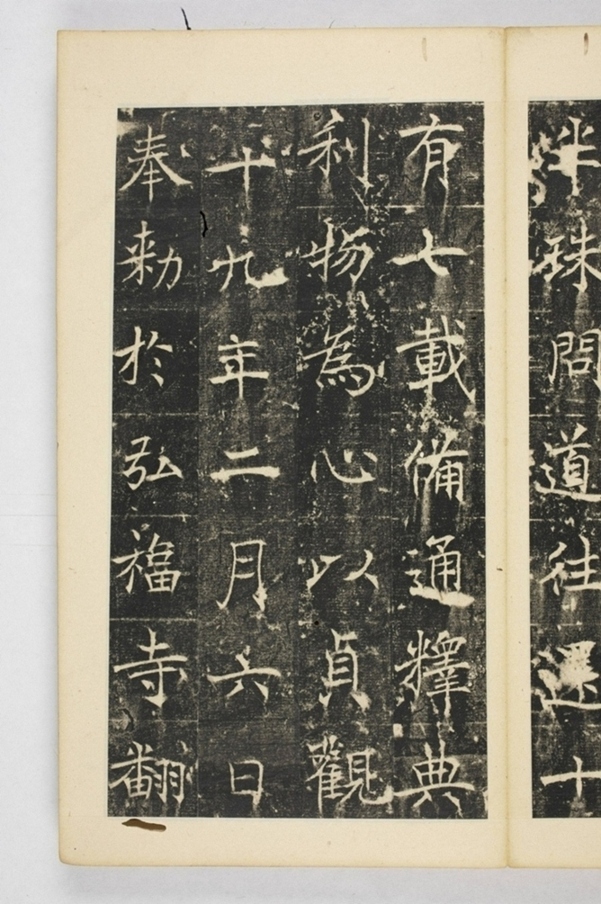 半珠問道往還十
有七載備通釋典
利物為心以貞觀
十九年二月六日
奉勅於弘福寺翻